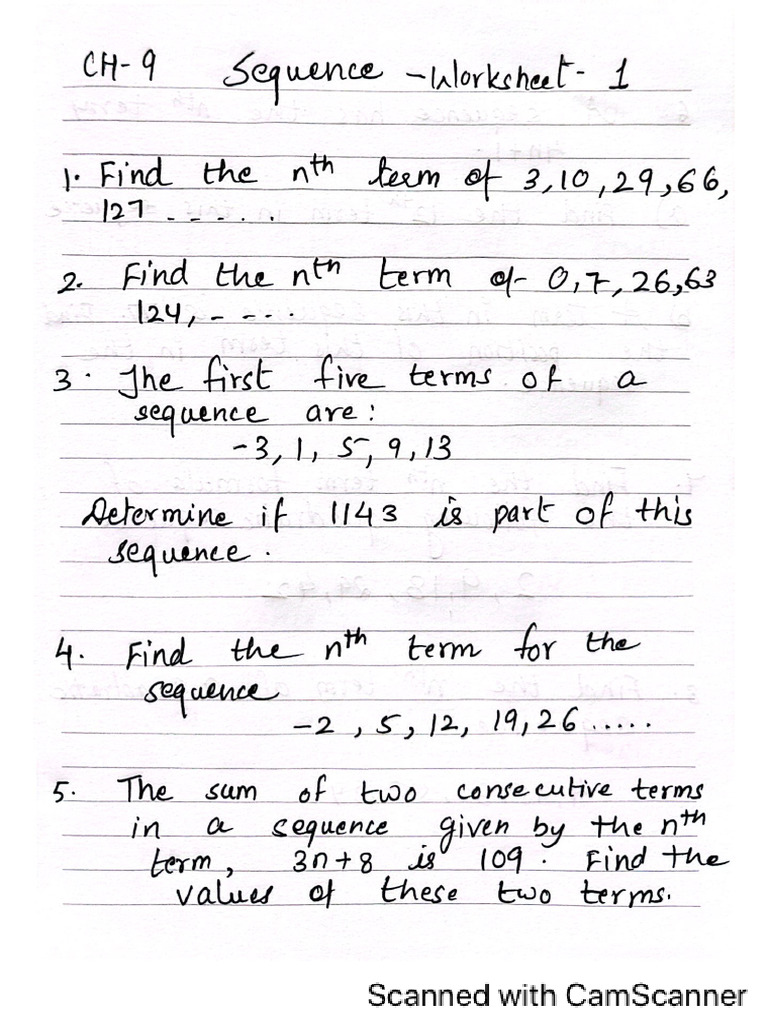 CH-9 Sequence - Worksheet - 1
1. Find the nth term of 3, 10, 29, 66,
127 - - - . . .
2. Find the nth term of - 0, 7, 26, 63
124, - - - . .
3. The first five terms of a
sequence are:
-3, 1, 5, 9, 13
Determine if 1143 is part of this
sequence.
4. Find the nth term for the
sequence
-2, 5, 12, 19, 26 .....
5. The sum of two consecutive terms
in a sequence given by the nth
term, 3n+8 is 109. Find the
values of these two terms.
Scanned with CamScanner